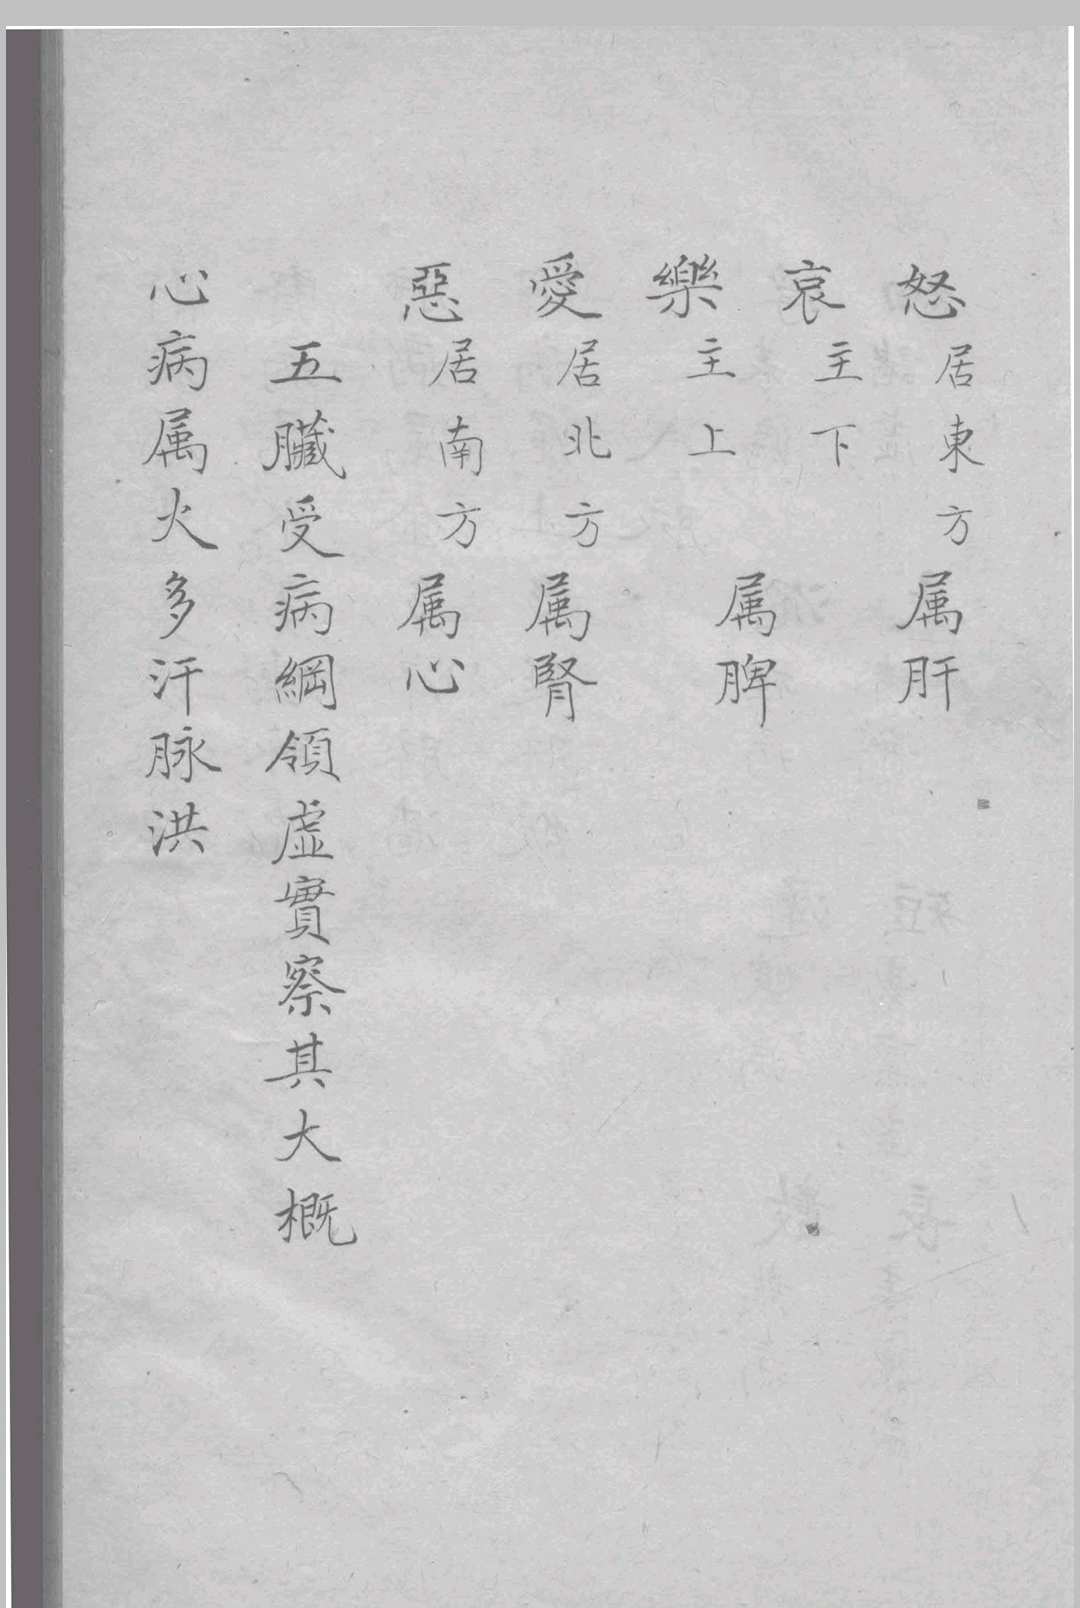 怒居東方属肝
哀主下
樂主上
属脾
愛居北方属腎
惡居南方属心
五臟受病綱領虛實察其大概
心病属火多汗脉洪